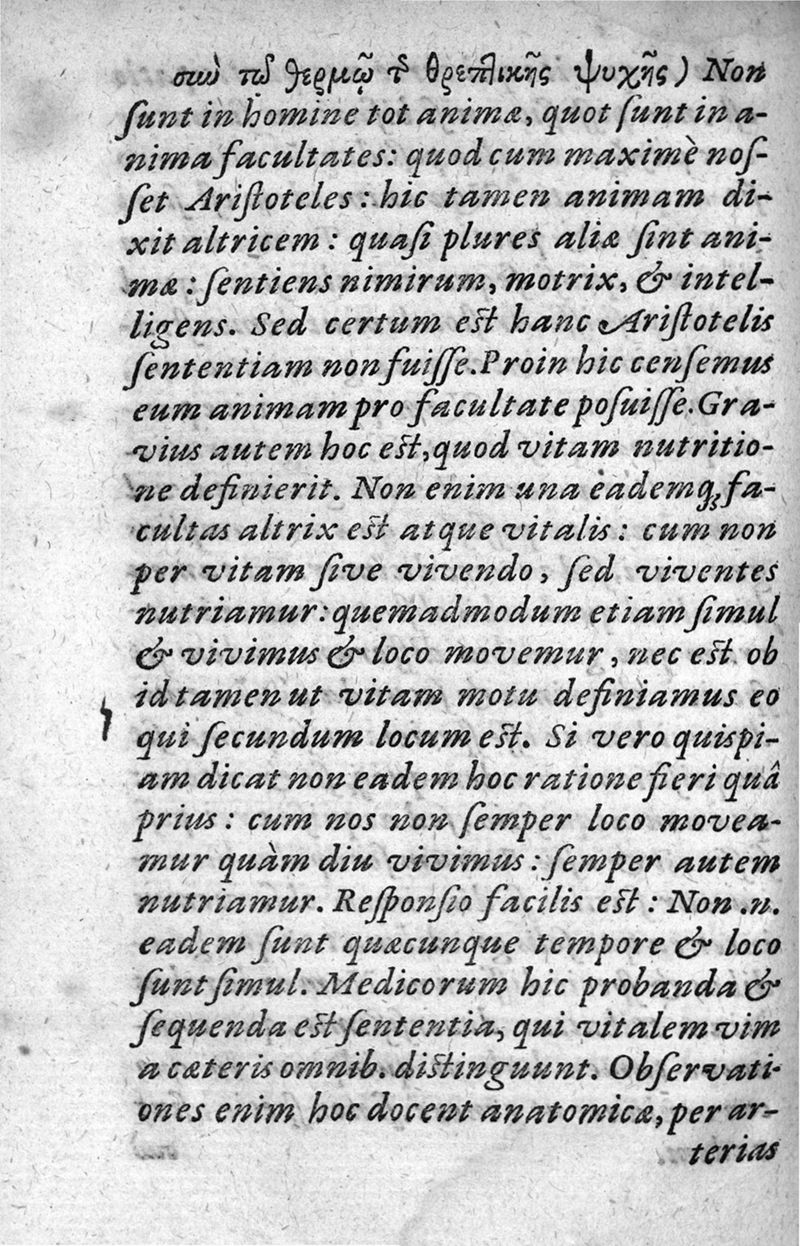 σιω τῷ θερμῷ τ͂ θρεπτικῆς ψυχῆς) Non
ſunt in homine tot animæ, quot ſunt in a-
nima facultates: quod cum maximè noſ-
ſet Ariſtoteles: hic tamen animam di-
xit altricem: quaſi plures aliæ ſint ani-
mæ: ſentiens nimirum, motrix, & intel-
ligens. Sed certum eſt hanc Ariſtotelis
ſententiam non fuiſſe. Proin hic cenſemus
eum animam pro facultate poſuiſſe. Gra-
vius autem hoc eſt, quod vitam nutritio-
ne definierit. Non enim una eademq; fa-
cultas altrix eſt atque vitalis: cum non
per vitam ſive vivendo, ſed viventes
nutriamur: quemadmodum etiam ſimul
& vivimus & loco movemur, nec eſt ob
id tamen ut vitam motu definiamus eo
qui ſecundum locum eſt. Si vero quispi-
am dicat non eadem hoc ratione fieri quâ
prius: cum nos non ſemper loco movea-
mur quàm diu vivimus: ſemper autem
nutriamur. Reſponſio facilis eſt: Non .n.
eadem ſunt quæcunque tempore & loco
ſunt ſimul. Medicorum hic probanda &
ſequenda eſt ſententia, qui vitalem vim
a cæteris omnib. diſtinguunt. Obſervati-
ones enim hoc docent anatomicæ, per ar-
terias